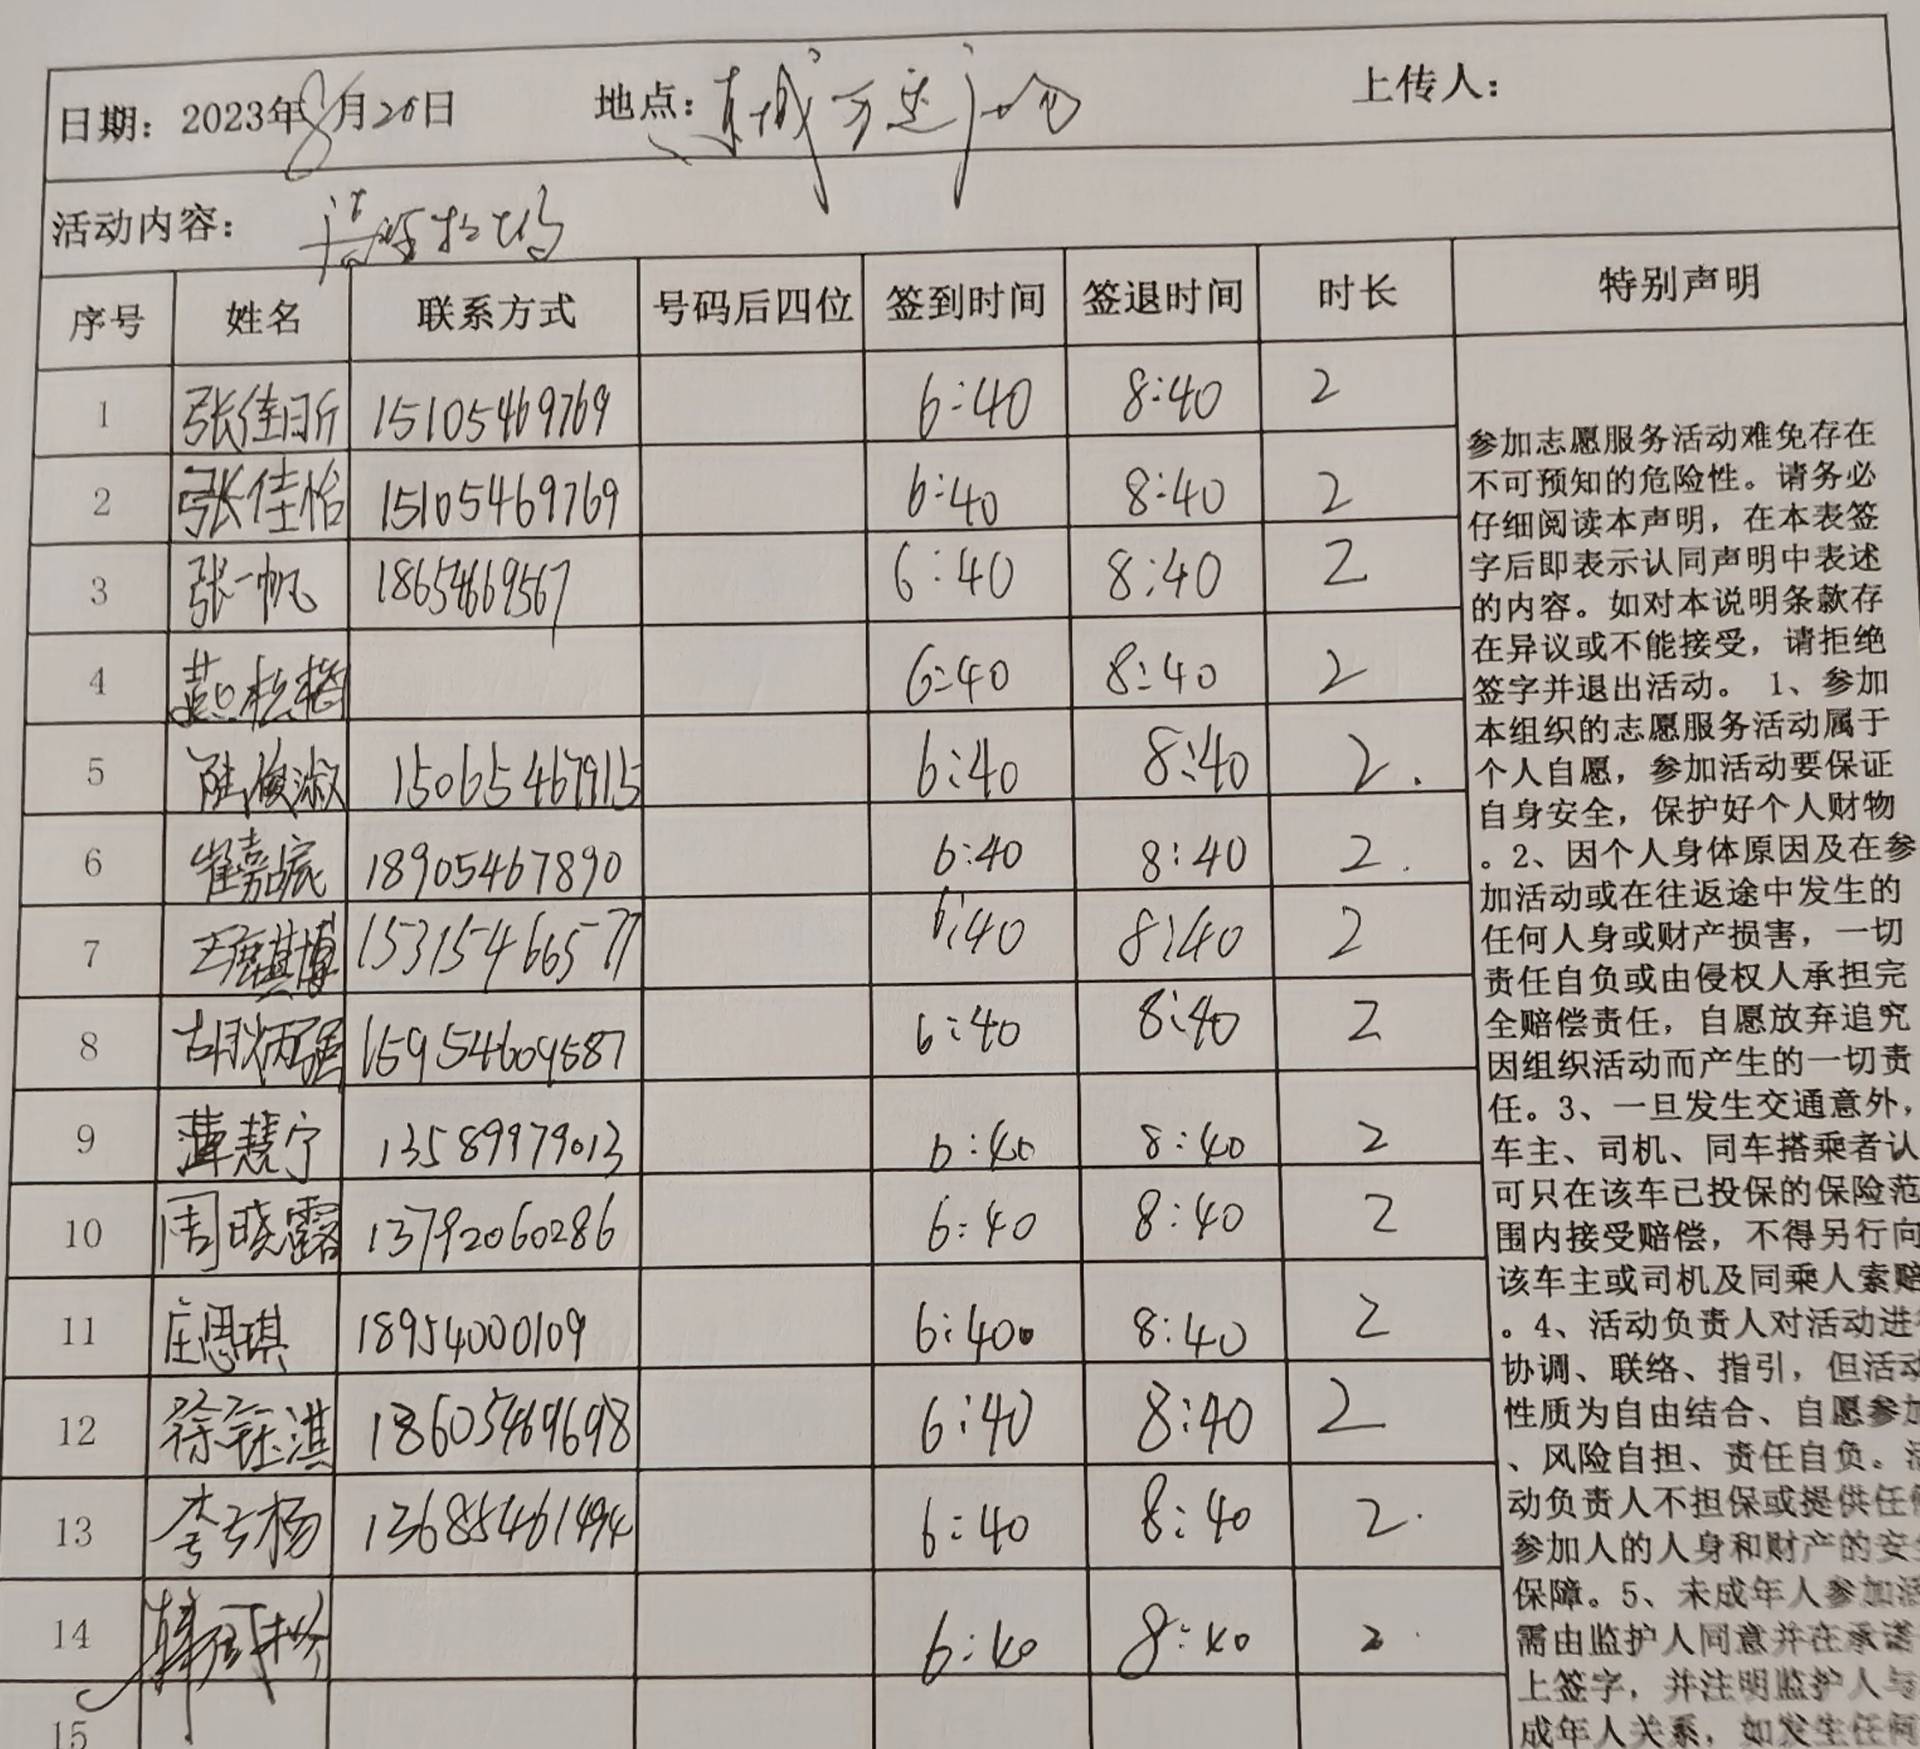 日期：2023年8月20日 地点： 上传人：
活动内容：
序号 姓名 联系方式 号码后四位 签到时间 签退时间 时长 特别声明
1 张佳昕 15105469769 6:40 8:40 2
2 张佳怡 15105469769 6:40 8:40 2
3 张一帆 18654669567 6:40 8:40 2
4 6:40 8:40 2
5 陆俊淑 15065467915 6:40 8:40 2
6 崔嘉宸 18905467890 6:40 8:40 2
7 15315466577 6:40 8:40 2
8 胡炳强 15954609587 6:40 8:40 2
9 薄慧宁 13589979013 6:40 8:40 2
10 周晓露 13792060286 6:40 8:40 2
11 庄思琪 18954000109 6:40 8:40 2
12 徐钰淇 18605469698 6:40 8:40 2
13 13685461494 6:40 8:40 2
14 6:40 8:40 2
15
参加志愿服务活动难免存在
不可预知的危险性。请务必
仔细阅读本声明，在本表签
字后即表示认同声明中表述
的内容。如对本说明条款存
在异议或不能接受，请拒绝
签字并退出活动。 1、参加
本组织的志愿服务活动属于
个人自愿，参加活动要保证
自身安全，保护好个人财物
。2、因个人身体原因及在参
加活动或在往返途中发生的
任何人身或财产损害，一切
责任自负或由侵权人承担完
全赔偿责任，自愿放弃追究
因组织活动而产生的一切责
任。3、一旦发生交通意外，
车主、司机、同车搭乘者认
可只在该车已投保的保险范
围内接受赔偿，不得另行向
该车主或司机及同乘人索赔
。4、活动负责人对活动进行
协调、联络、指引，但活动
性质为自由结合、自愿参加
、风险自担、责任自负。活
动负责人不担保或提供任何
参加人的人身和财产的安全
保障。5、未成年人参加活
需由监护人同意并在承诺
上签字，并注明监护人与
成年人关系，如发生任何